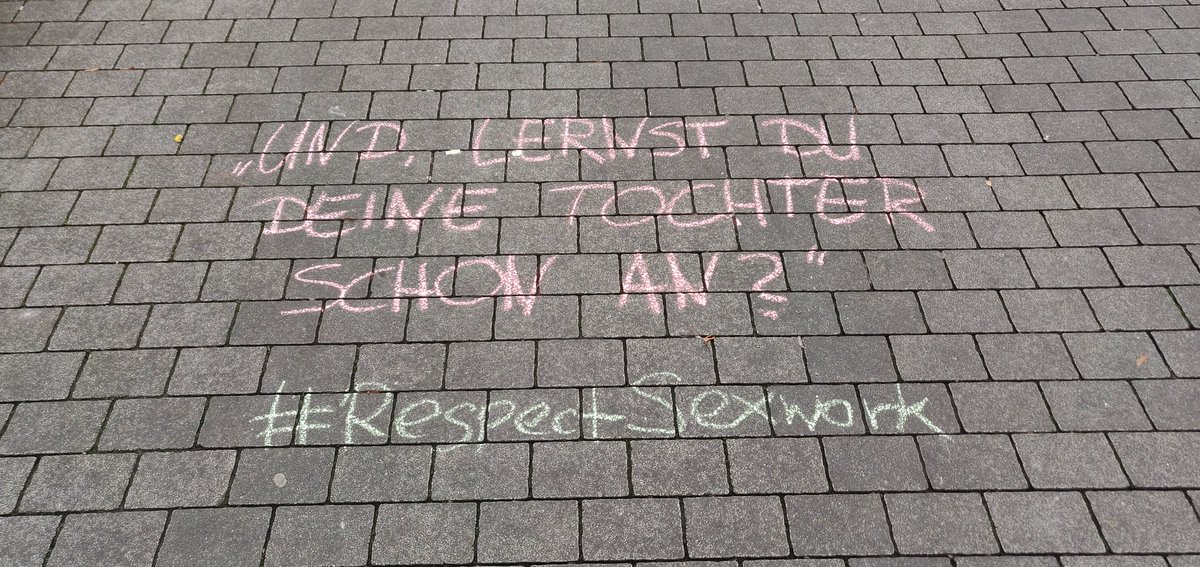 „UND, LERNST DU
DEINE TOCHTER
SCHON AN?"
#RespectSexwork